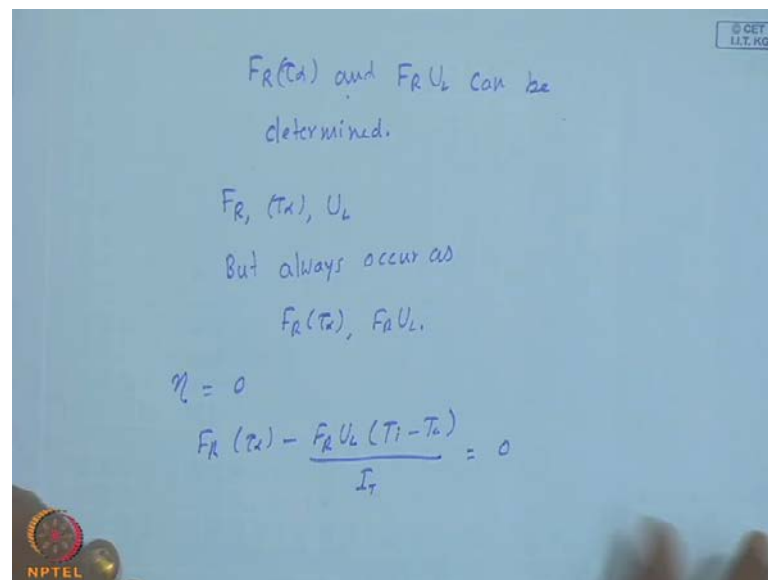 © CET
I.I.T. KG
F_R(τα) and F_R U_L can be
determined.
F_R, (τα), U_L
But always occur as
F_R(τα), F_R U_L.
η = 0
F_R (τα) - F_R U_L (T_i - T_a) / I_T = 0
NPTEL